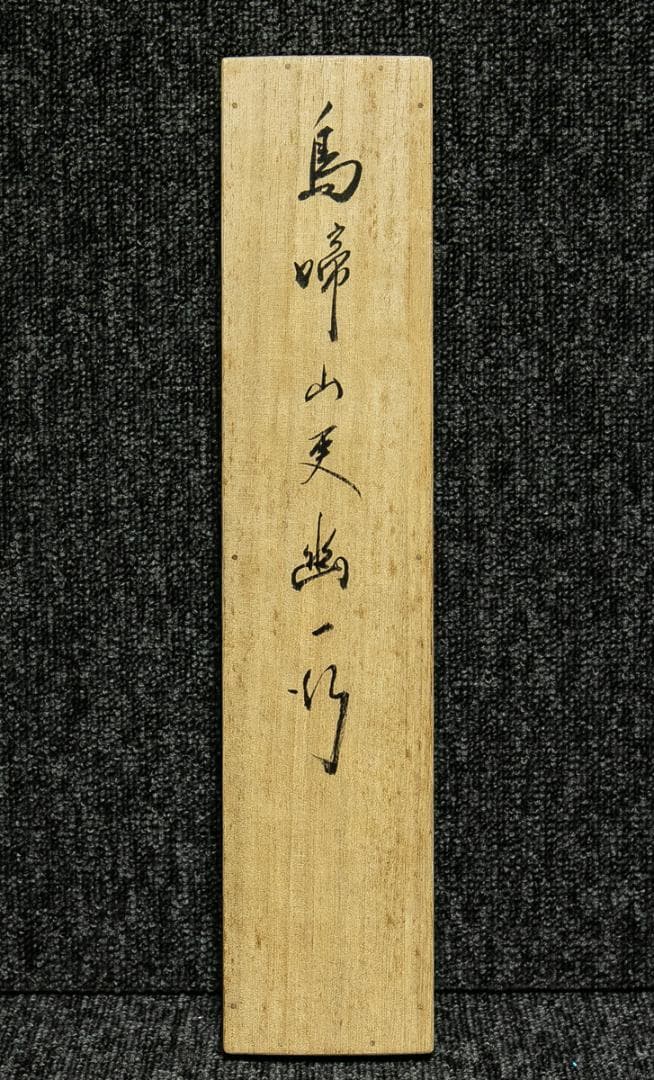 鳥啼山更幽一行